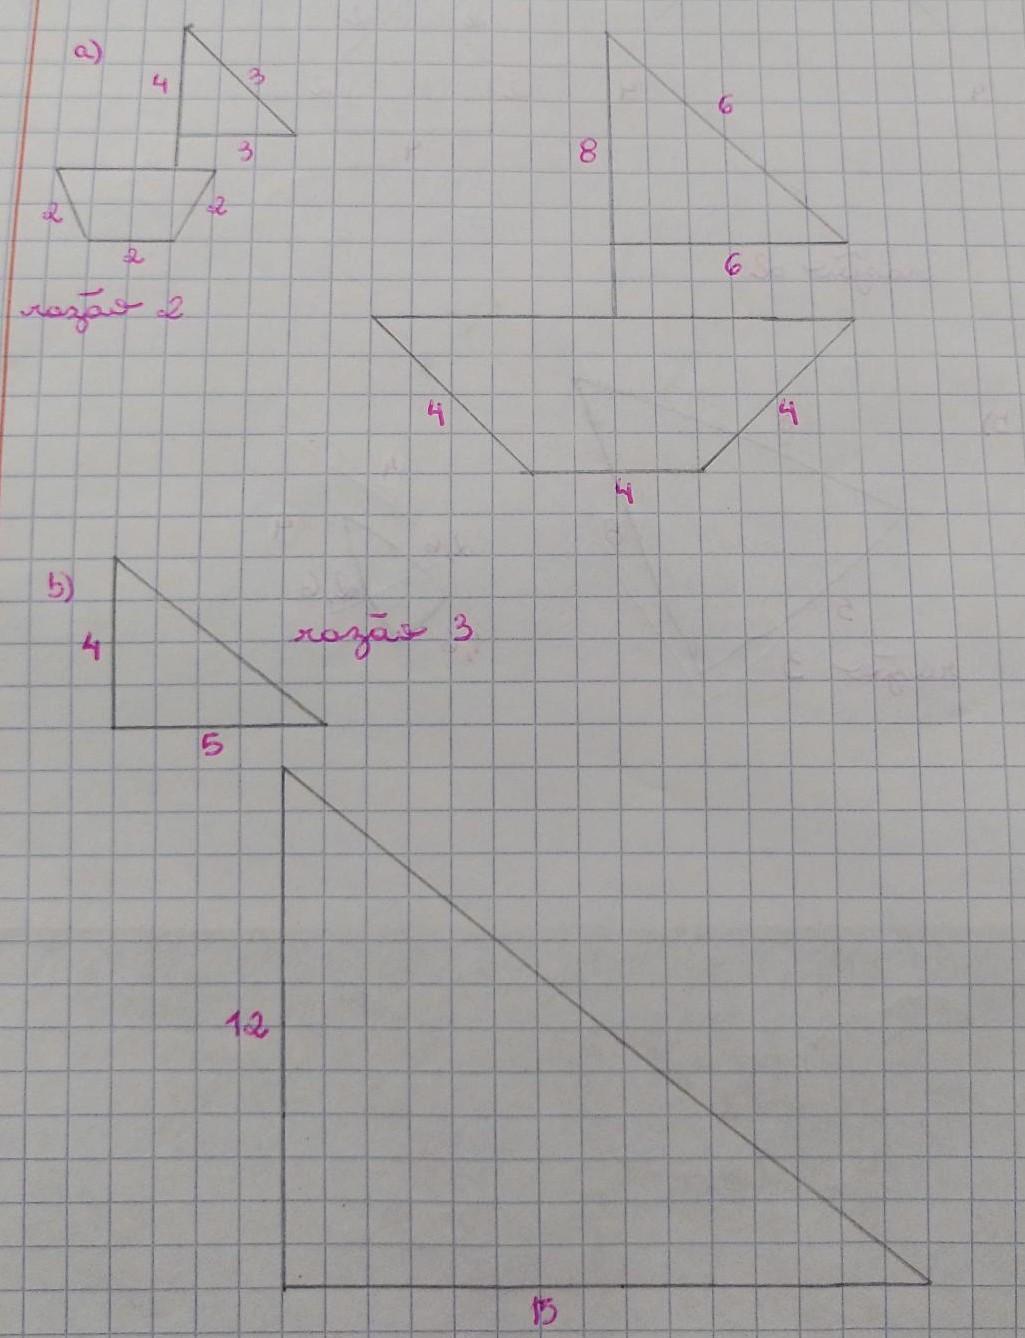 a)
4
3
3
2
2
2
razão 2
8
6
6
4
4
4
b)
4
razão 3
5
12
15